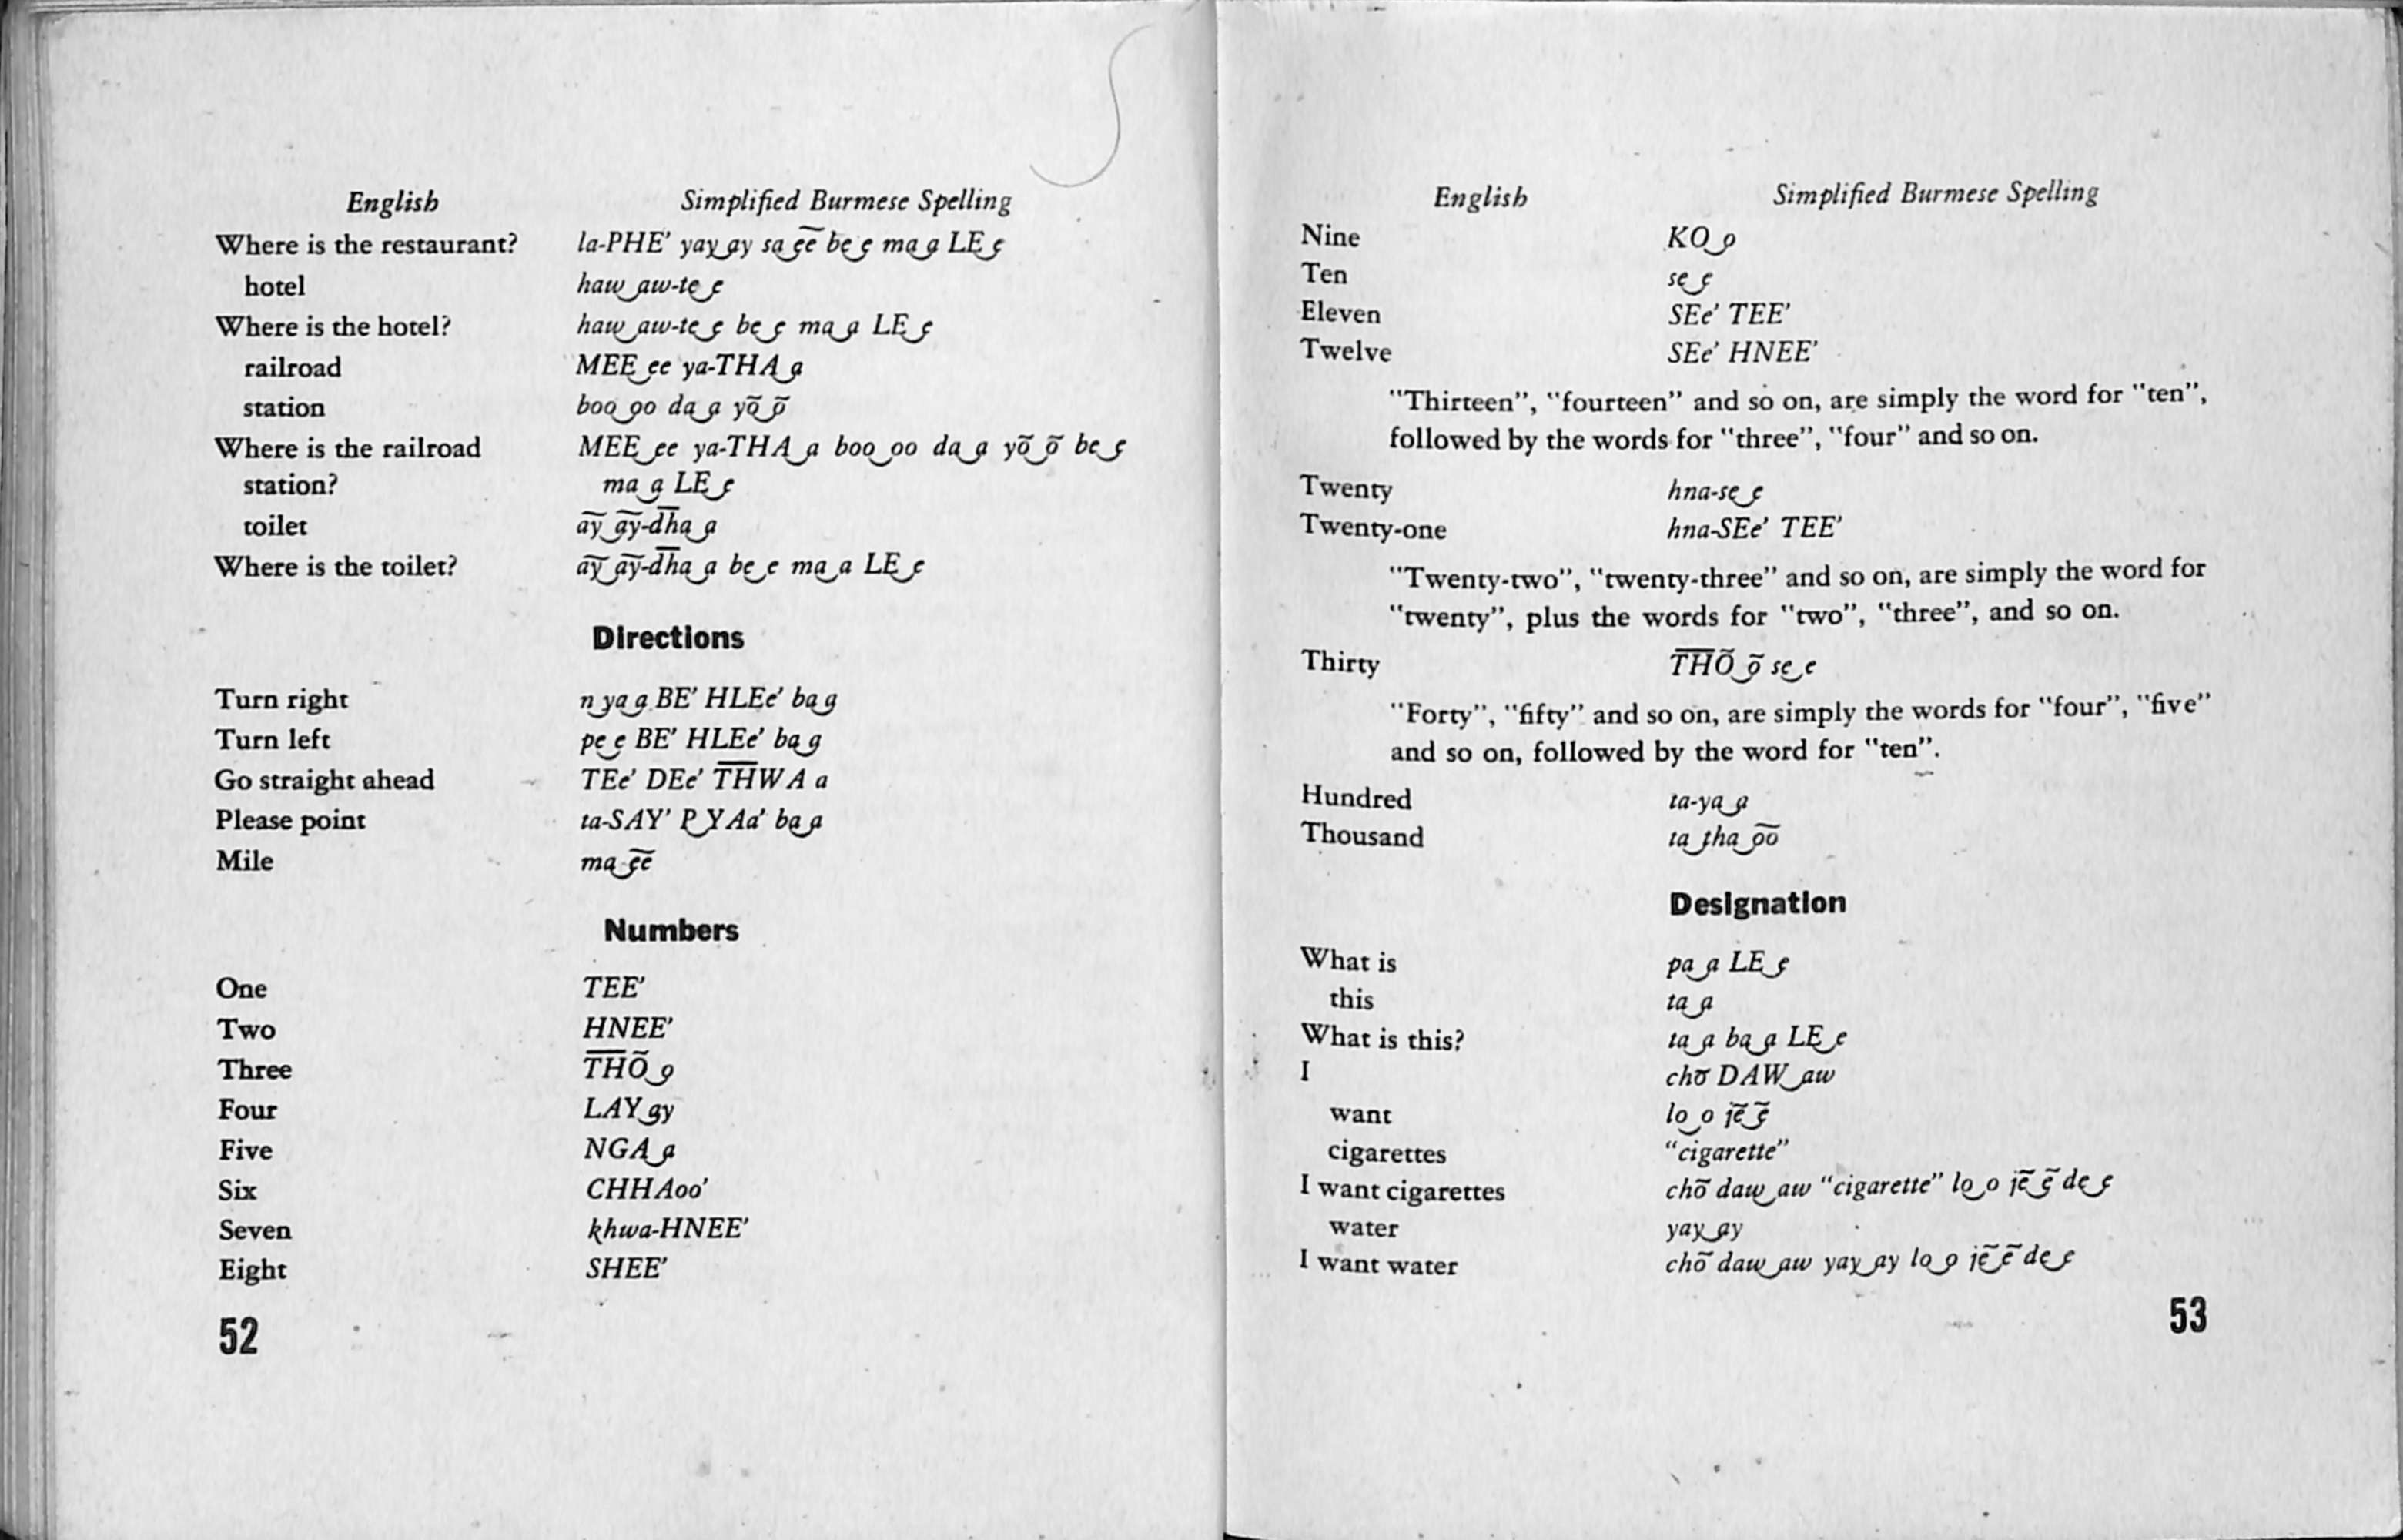 English Simplified Burmese Spelling
Where is the restaurant? la-PHE’ yay‿ay sa‿ẽẽ be‿e ma‿a LE‿e
hotel haw‿aw-te‿e
Where is the hotel? haw‿aw-te‿e be‿e ma‿a LE‿e
railroad MEE‿ee ya-THA‿a
station boo‿oo da‿a yõ‿õ
Where is the railroad MEE‿ee ya-THA‿a boo‿oo da‿a yõ‿õ be‿e
station? ma‿a LE‿e
toilet ãỹ‿ãỹ-d̅h̅a‿a
Where is the toilet? ãỹ‿ãỹ-d̅h̅a‿a be‿e ma‿a LE‿e
Directions
Turn right n‿ya‿a BE’ HLEe’ ba‿a
Turn left pe‿e BE’ HLEe’ ba‿a
Go straight ahead TEe’ DEe’ T̅H̅WA a
Please point ta-SAY’ P‿YAa’ ba‿a
Mile ma‿ẽẽ
Numbers
One TEE’
Two HNEE’
Three T̅H̅Õ‿o
Four LAY‿ay
Five NGA‿a
Six CHHAoo’
Seven khwa-HNEE’
Eight SHEE’
52
English Simplified Burmese Spelling
Nine KO‿o
Ten se‿e
Eleven SEe’ TEE’
Twelve SEe’ HNEE’
"Thirteen", "fourteen" and so on, are simply the word for "ten",
followed by the words for "three", "four" and so on.
Twenty hna-se‿e
Twenty-one hna-SEe’ TEE’
"Twenty-two", "twenty-three" and so on, are simply the word for
"twenty", plus the words for "two", "three", and so on.
Thirty T̅H̅Õ‿õ se‿e
"Forty", "fifty" and so on, are simply the words for "four", "five"
and so on, followed by the word for "ten".
Hundred ta-ya‿a
Thousand ta‿tha‿õõ
Designation
What is pa‿a LE‿e
this ta‿a
What is this? ta‿a ba‿a LE‿e
I chõ DAW‿aw
want lo‿o jẽ‿ẽ
cigarettes “cigarette”
I want cigarettes chõ daw‿aw “cigarette” lo‿o jẽ‿ẽ de‿e
water yay‿ay
I want water chõ daw‿aw yay‿ay lo‿o jẽ‿ẽ de‿e
53